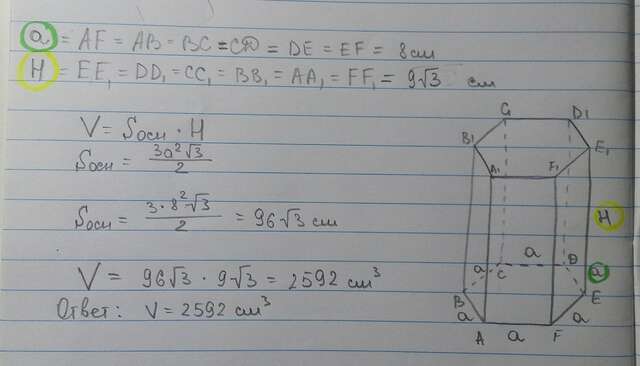 a = AF = AB = BC = CD = DE = EF = 8 см
H = EE₁ = DD₁ = CC₁ = BB₁ = AA₁ = FF₁ = 9√3 см
V = Sосн · H
Sосн = 3a²√3 / 2
Sосн = 3·8²·√3 / 2 = 96√3 см
V = 96√3 · 9√3 = 2592 см³
Ответ: V = 2592 см³
C₁ D₁
B₁ E₁
A₁ F₁
H
a
a C D a
B E
a a
A a F